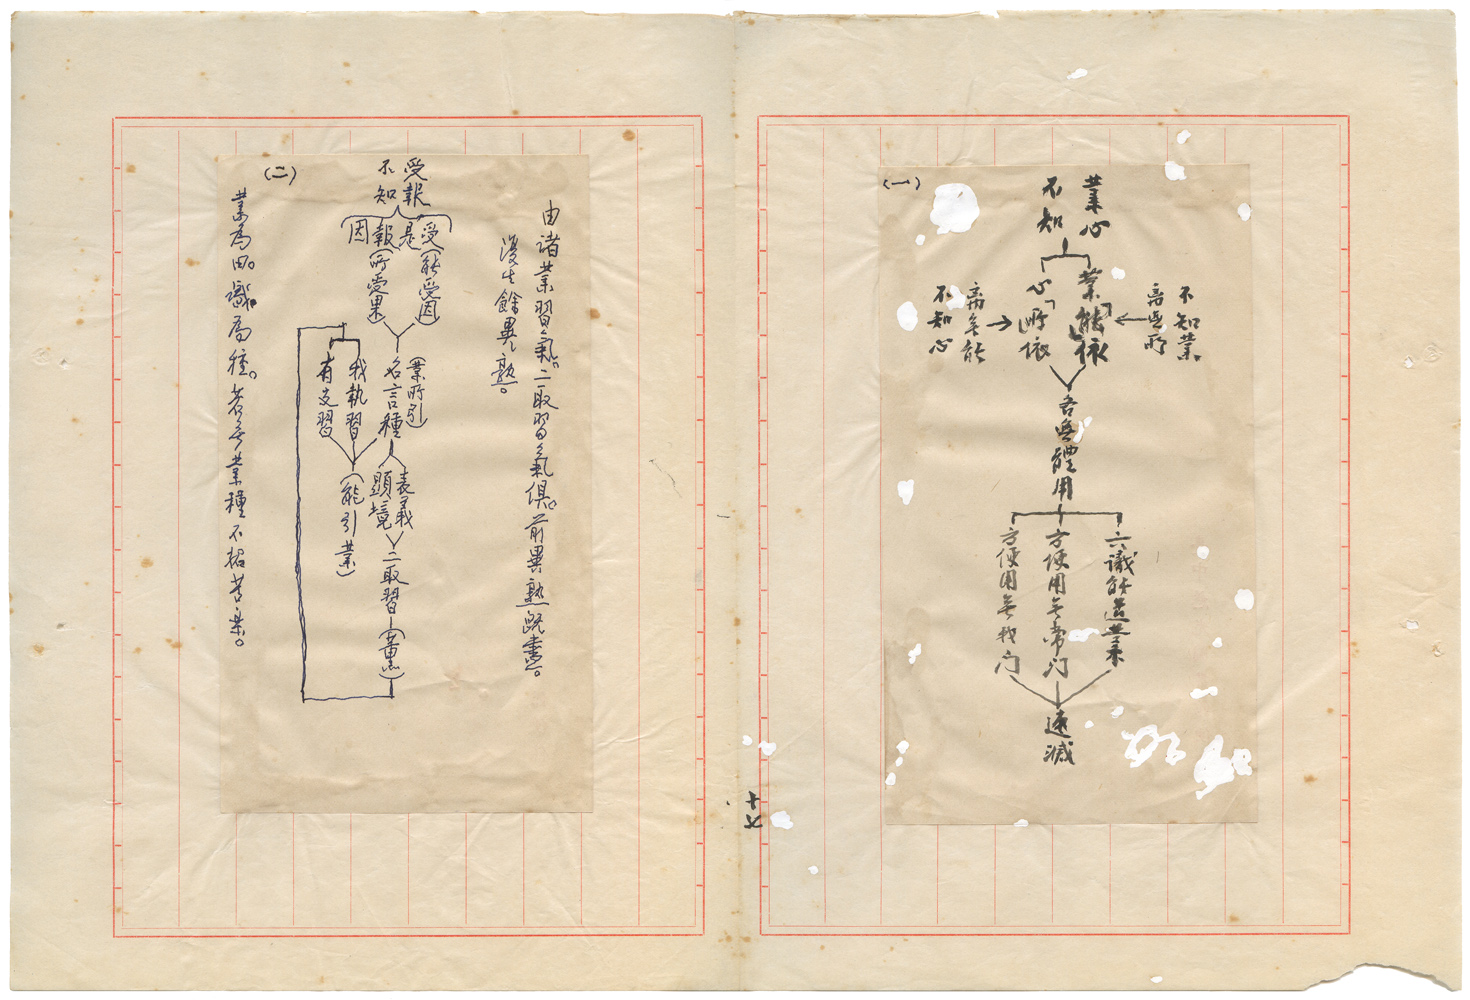 （一）
業心
不知
業「能依」
心「所依」
不知業
離無所
離無能
不知心
各無體用
六識能造業
方便用無常門
方便用無我門
速滅
十七
由諸業習氣。二取習氣俱。前異熟既盡。
復生餘異熟。
（二）
受報
不知
受（能受因）
是
報（所受果）
因
（業所引）
名言種
我執習
有支習
（能引業）
表義
顯境
二取習
（薰）
業為田。識為種。若無業種不招苦果。